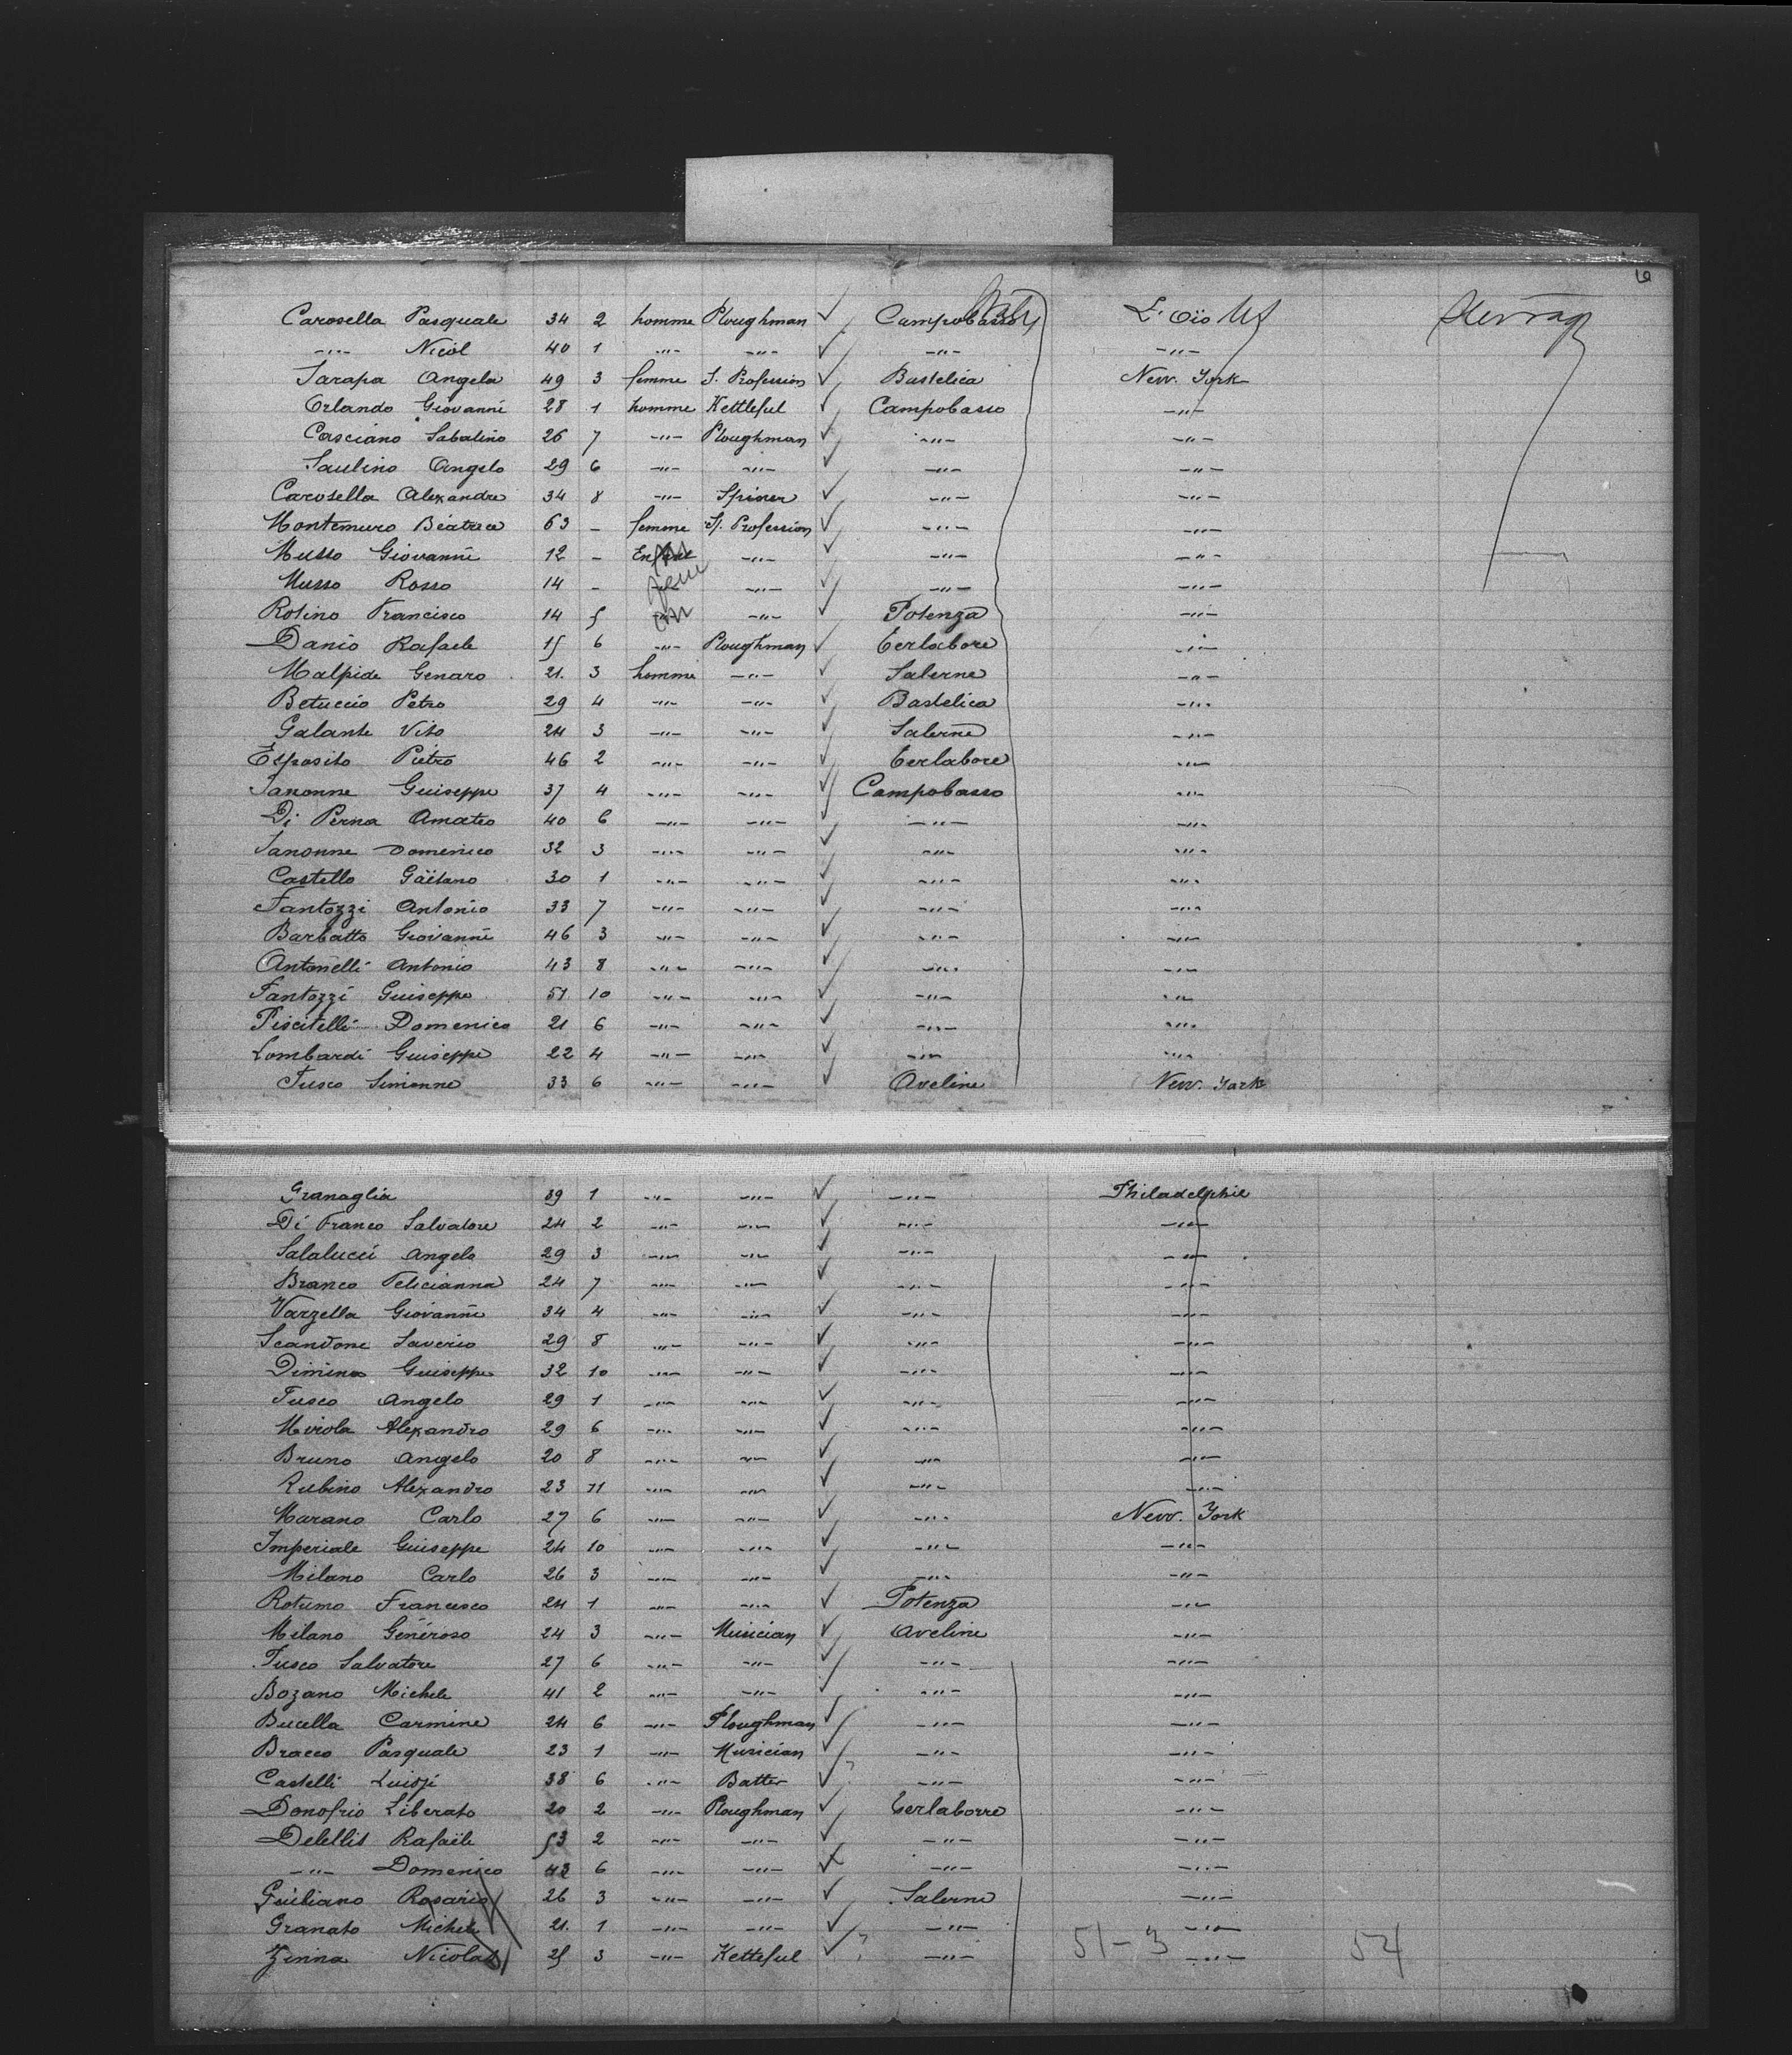 6
Carosella Pasquale 34 2 homme Ploughman ✓ Campobasso Italy L'Oïo Steerage
-"- Nicol 40 1 -"- -"- ✓ -"- -"-
Sarapa Angela 49 3 femme S. Profession ✓ Bastelica New. York
Orlando Giovanni 28 1 homme Kettleful ✓ Campobasso -"-
Casciano Sabatino 26 7 -"- Ploughman ✓ -"- -"-
Saulino Angelo 29 6 -"- -"- ✓ -"- -"-
Carosella Alexandre 34 8 -"- Spiner ✓ -"- -"-
Montemuro Béatrice 63 - femme S. Profession ✓ -"- -"-
Musso Giovanni 12 - -"- ✓ -"- -"-
Musso Rosso 14 - -"- ✓ -"- -"-
Rotino Francisco 14 5 -"- -"- ✓ Potenza -"-
Danio Rafaele 15 6 -"- Ploughman ✓ Terlabore -"-
Malpide Genaro 21. 3 homme -"- ✓ Salerne -"-
Betuccio Petro 29 4 -"- -"- ✓ Bastelica -"-
Galante Vito 24 3 -"- -"- ✓ Salerne -"-
Esposito Pietro 46 2 -"- -"- ✓ Terlabore -"-
Ianonne Guiseppe 37 4 -"- -"- ✓ Campobasso -"-
Di Perna Amateo 40 6 -"- -"- ✓ -"- -"-
Ianonne Domenico 32 3 -"- -"- ✓ -"- -"-
Castello Gaïtano 30 1 -"- -"- ✓ -"- -"-
Fantozzi Antonio 33 7 -"- -"- ✓ -"- -"-
Barbatto Giovanni 46 3 -"- -"- ✓ -"- -"-
Antonelli Antonio 43 8 -"- -"- ✓ -"- -"-
Fantozzi Guiseppe 51 10 -"- -"- ✓ -"- -"-
Piscitelli Domenico 21 6 -"- -"- ✓ -"- -"-
Lombardi Guiseppe 22 4 -"- -"- ✓ -"- -"-
Fusco Simonne 33 6 -"- -"- ✓ Aveline New. York
Granaglia 39 1 -"- -"- ✓ -"- Philadelphie
Di Franco Salvatore 24 2 -"- -"- ✓ -"- -"-
Salalucci Angelo 29 3 -"- -"- ✓ -"- -"-
Branco Felicianna 24 7 -"- -"- ✓ -"- -"-
Varzella Giovanni 34 4 -"- -"- ✓ -"- -"-
Scandone Saverio 29 8 -"- -"- ✓ -"- -"-
Dimino Guiseppe 32 10 -"- -"- ✓ -"- -"-
Fusco Angelo 29 1 -"- -"- ✓ -"- -"-
Mirola Alexandro 29 6 -"- -"- ✓ -"- -"-
Bruno Angelo 20 8 -"- -"- ✓ -"- -"-
Rubino Alexandro 23 11 -"- -"- ✓ -"- -"-
Marano Carlo 27 6 -"- -"- ✓ -"- New. York
Imperiale Guiseppe 24 10 -"- -"- ✓ -"- -"-
Milano Carlo 26 3 -"- -"- ✓ -"- -"-
Rotumo Francesco 24 1 -"- -"- ✓ Potenza -"-
Milano Généroso 24 3 -"- Musician ✓ Aveline -"-
Fusco Salvatore 27 6 -"- -"- ✓ -"- -"-
Bozano Michele 41 2 -"- -"- ✓ -"- -"-
Bucella Carmine 24 6 -"- Ploughman ✓ -"- -"-
Bracco Pasquale 23 1 -"- Musician ✓ -"- -"-
Castelli Luidji 38 6 -"- Batter ✓ ? -"- -"-
Donofrio Liberato 20 2 -"- Ploughman ✓ Terlaborre -"-
Delellis Rafaële 53 2 -"- -"- ✓ -"- -"-
-"- Domenico 43 6 -"- -"- ✓ -"- -"-
Guiliano Rosario 26 3 -"- -"- ✓ Salerne -"-
Granato Michele 21. 1 -"- -"- ✓ -"- -"-
Zinna Nicolas 25 3 -"- Ketteful ✓ ? -"- 51-3 -"- 54